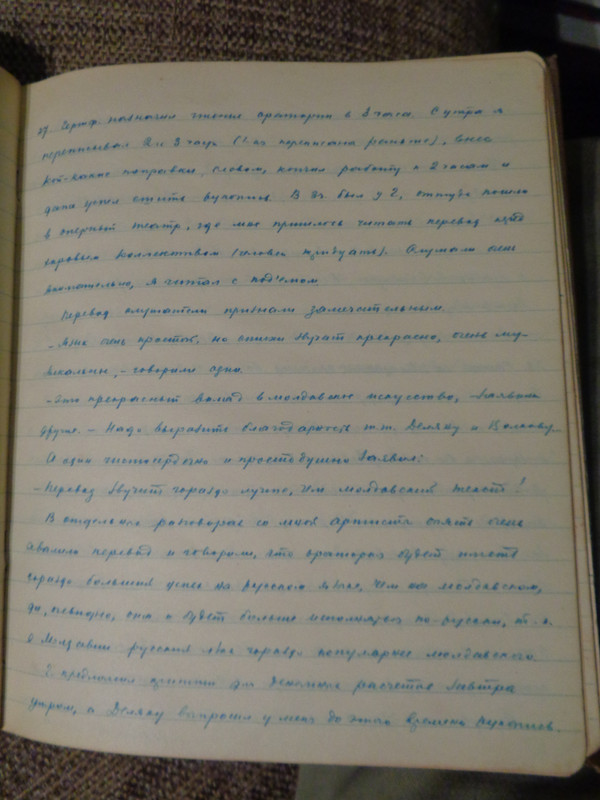 27. Герт. назначил чтение оратории в 3 часа. С утра я
переписывал 2 и 3 часть (1 переписана раньше), внес
кой-какие поправки, словом, кончил работу к 2 часам и
даже успел сшить рукопись. В был у 2, откуда пошли
в оперный театр, где мне пришлось читать перевод перед
хоровым коллективом (человек пятьдесят). Слушали очень
внимательно, я читал с под'емом.
Перевод слушатели признали замечательным.
– Язык очень простой, но стихи звучат прекрасно, очень му-
зыкальны, – говорили одни.
– Это прекрасный вклад в молдавское искусство, – заявили
другие. – Надо выразить благодарность т.т. Деляну и Волкову.
А один чистосердечно и простодушно заявил:
– Перевод звучит гораздо лучше, чем молдавский текст!
В отдельных разговорах со мной артисты опять очень
хвалили перевод и говорили, что оратория будет иметь
гораздо больший успех на русском языке, чем на молдавском,
да, очевидно, она и будет больше исполняться по-русски, т.к.
в Молдавии русский язык гораздо популярнее молдавского.
предложил притти для денежных расчетов завтра
утром, а Деляну выпросил у меня до этого времени рукопись.